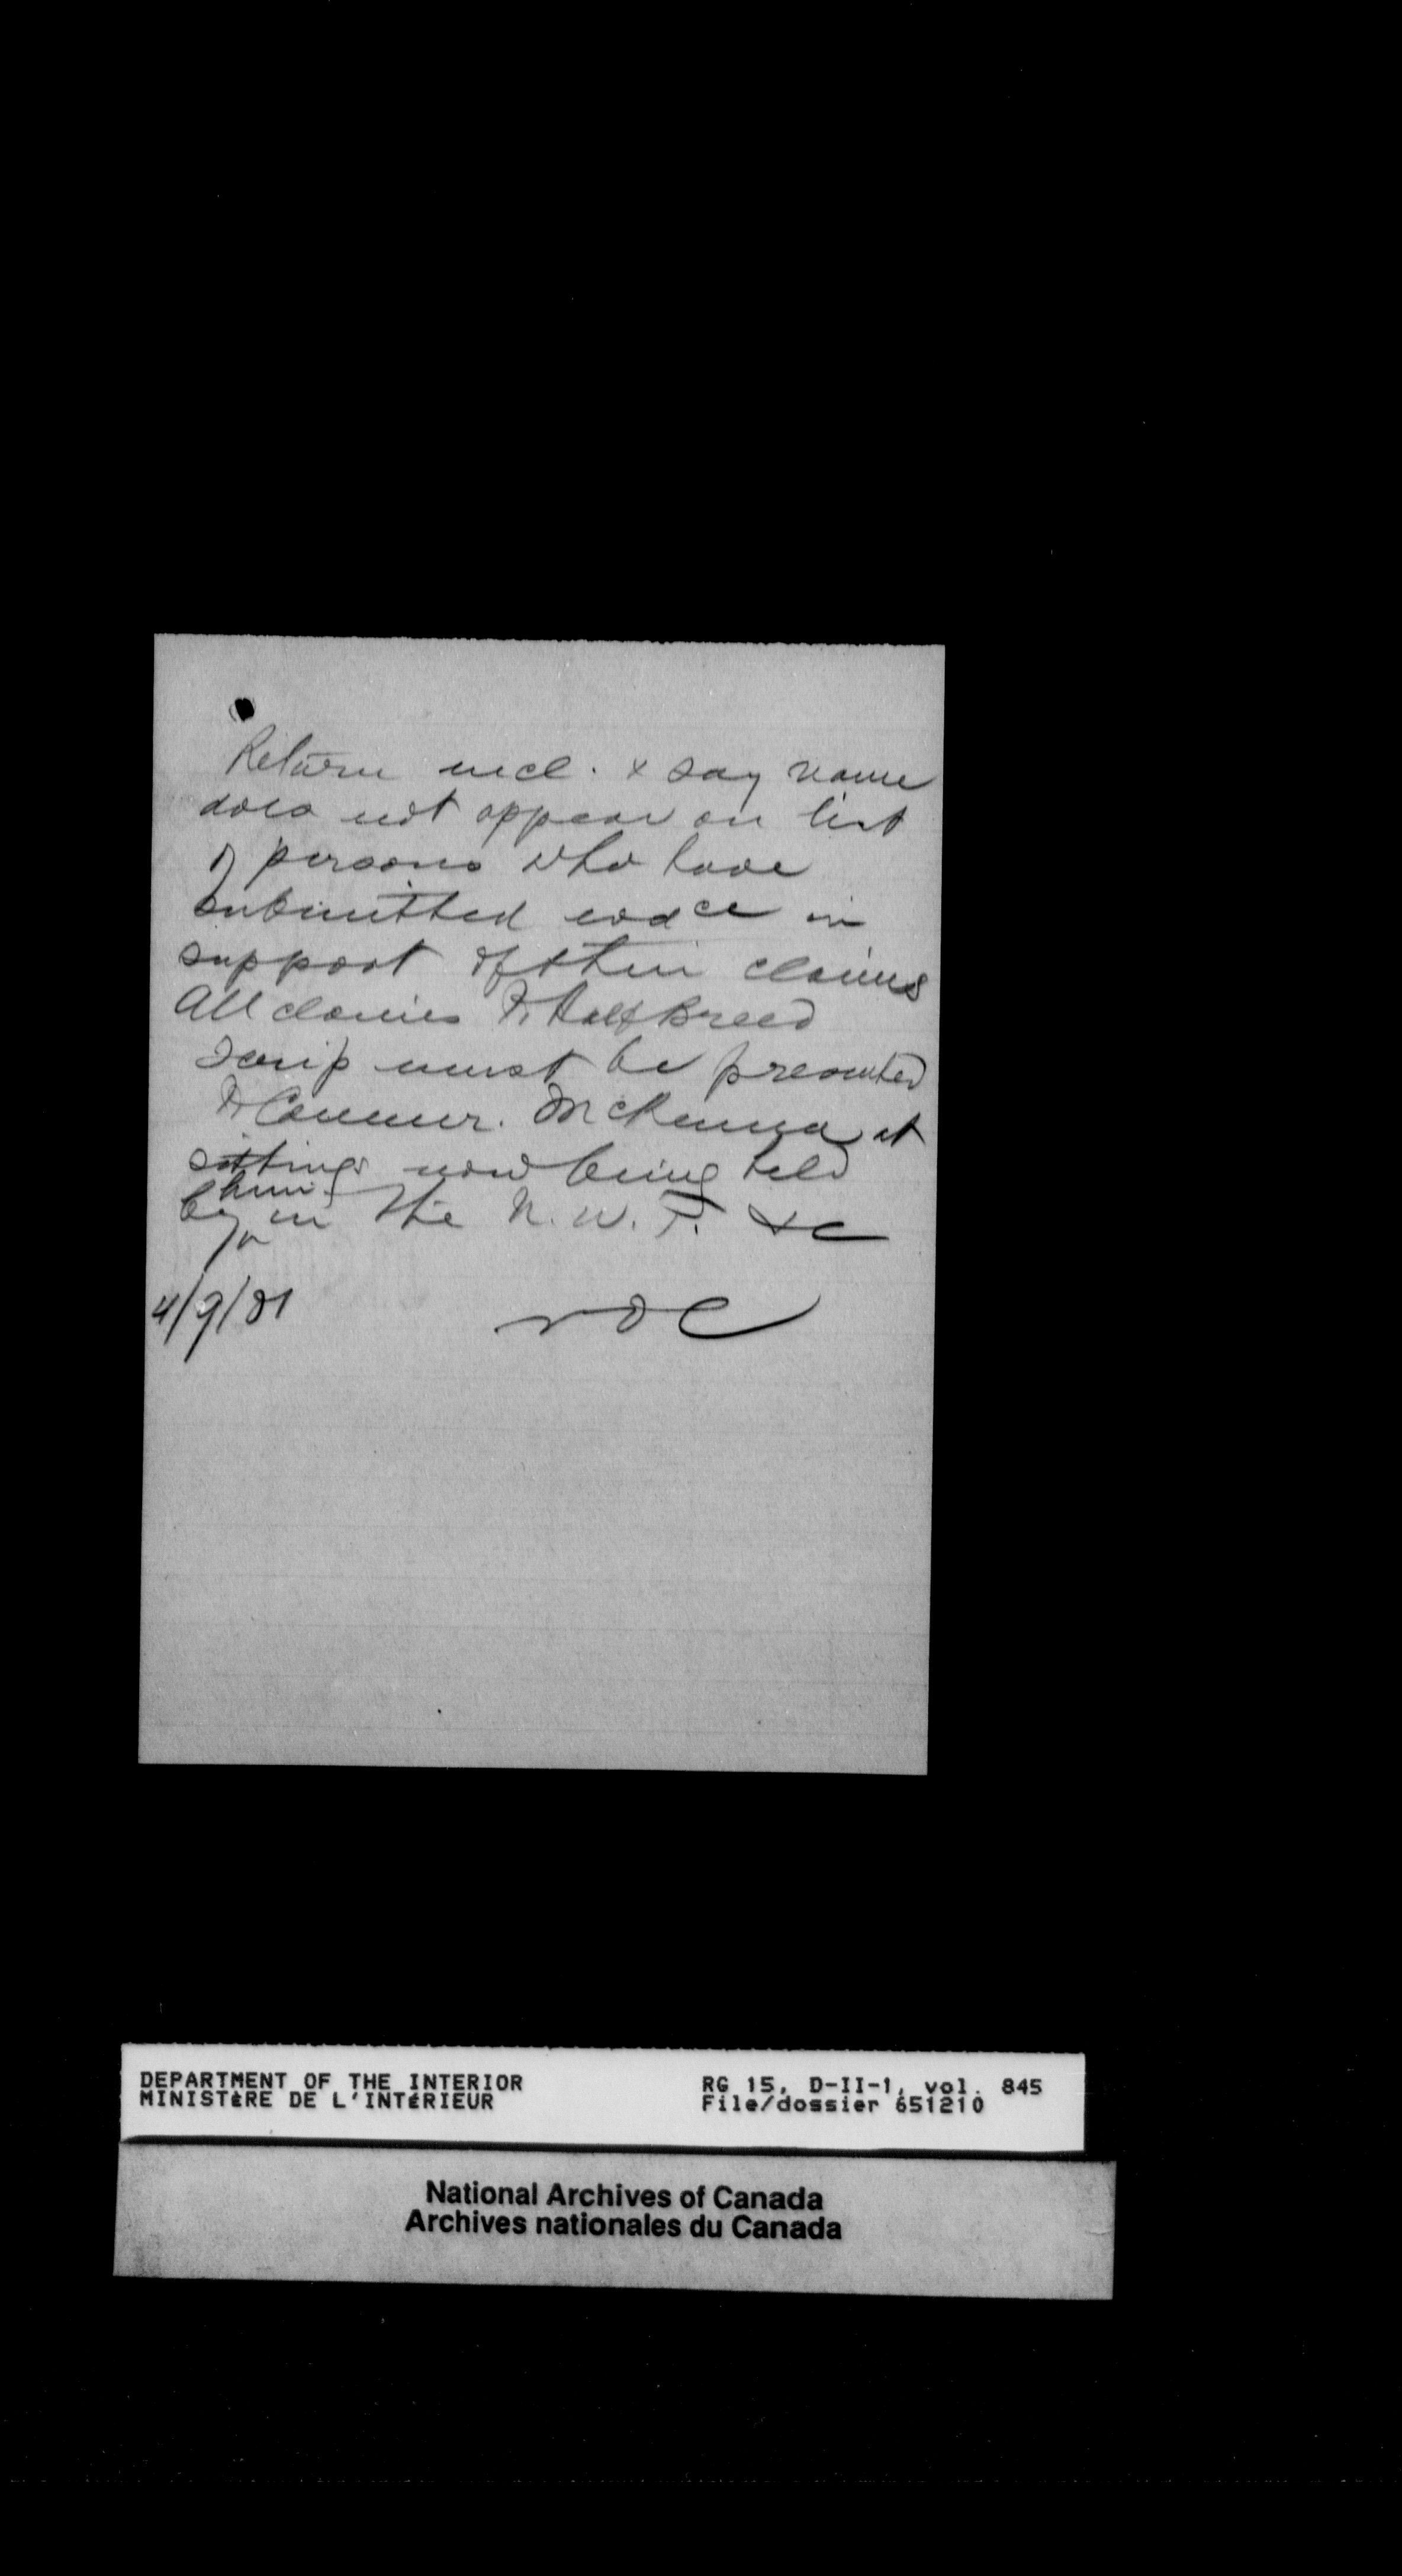 Return encl. & say name
does not appear on list
of persons who have
submitted evdce in
support of their claims
All claims to Half Breed
Scrip must be presented
to Commr. McKenna at
sittings now being held
by him in the N.W.T. &c
4/9/01
DEPARTMENT OF THE INTERIOR
MINISTÈRE DE L'INTÉRIEUR
RG 15, D-II-1, vol. 845
File/dossier 651210
National Archives of Canada
Archives nationales du Canada